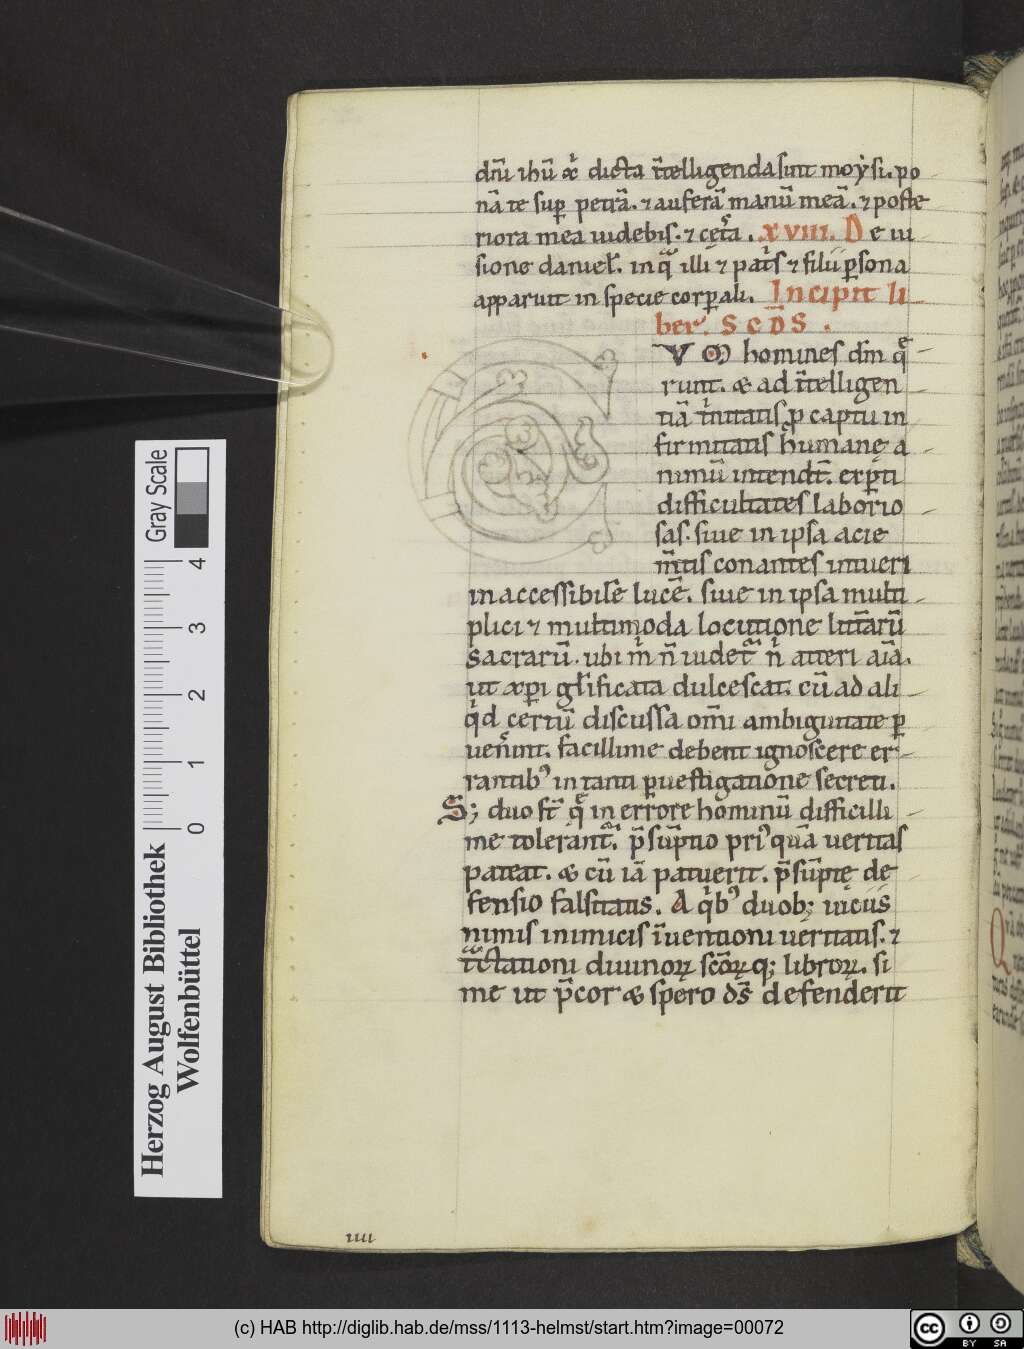 dñu ihũ xͥ dicta ı̃telligenda sint moẏsi. po
nã te sup petrã. ⁊ auferã manũ meã. ⁊ poste
riora mea uidebis. ⁊ cetͣa. xviii. De ui
sione daniel̃. in qͣ illi ⁊ patͥs ⁊ filii psona
apparuit in specie corpali. Incipit li
ber. SCD̃S.
VM homines dm̃ qͤ
runt. & ad ı̃telligen
tiã tͥnitatis p captu in
firmitatis humanę a
nimũ intendt̃. expti
difficultates laborio
sas. siue in ipsa acie
m̃tis conantes intueri
inaccessibile lucẽ. siue in ipsa multi
plici ⁊ multimoda locutione litt̃arũ
sacrarũ. ubi m̃ ñ uidetͣ nͥ atteri aĩa.
ut xpi gl̃ificata dulcescat. cũ ad ali
qͥd certũ discussa om̃i ambiguitate p
uen̓int. facillime debent ignoscere er
rantibꝰ in tanti puestigatione secreti.
S; duo st̃ qͤ in errore hominũ difficilli
me tolerantͣ. p̃sũptio priꝰ quã ueritas
pateat. & cũ iã patuerit. p̃sũptę de
fensio falsitatis. A qͥbꝰ duob; uiciis
nimis inimicis ı̃uentioni ueritatis. ⁊
tͣctationi diuinoꝝ scõꝝq; libroꝝ. si
me ut p̃cor & spero ds̃ defenderit
iiii
Gray Scale
0 1 2 3 4
Herzog August Bibliothek
Wolfenbüttel
(c) HAB http://diglib.hab.de/mss/1113-helmst/start.htm?image=00072
cc BY SA